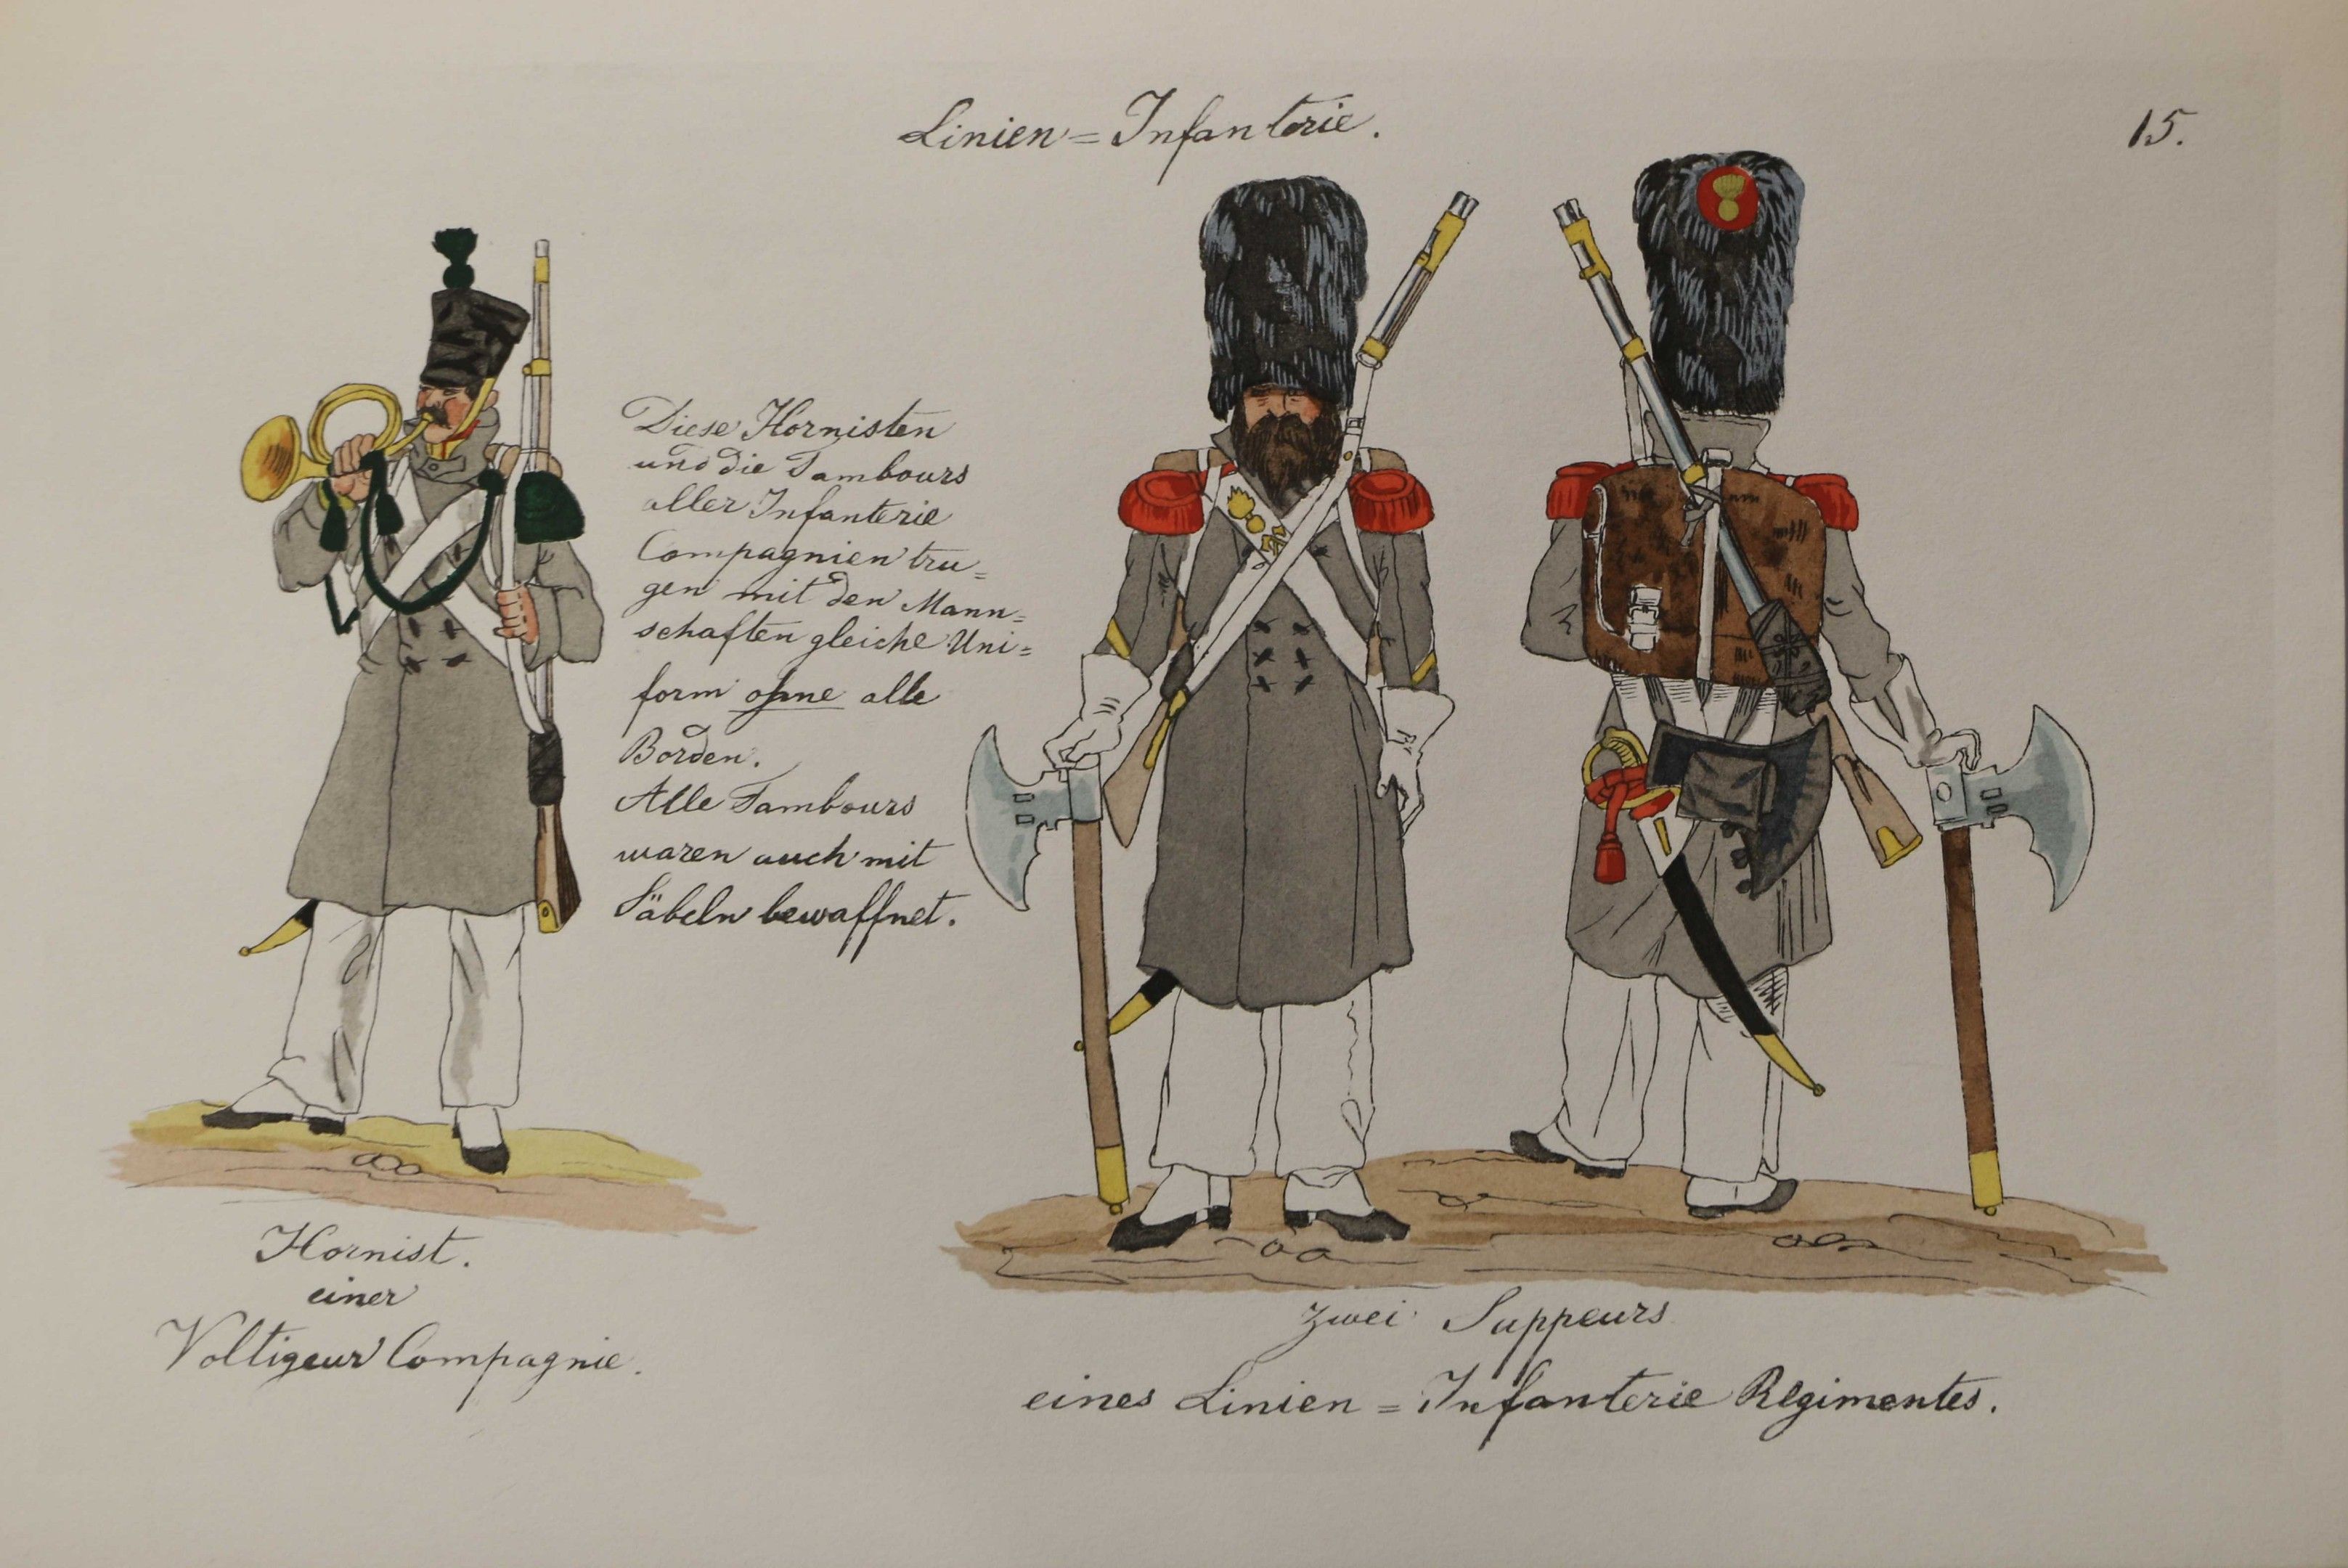 Linien=Infanterie.
15.
Diese Hornisten
und die Tambours
aller Infanterie
Compagnien tru=
gen mit den Mann=
schaften gleiche Uni=
form ohne alle
Borden.
Alle Tambours
waren auch mit
Säbeln bewaffnet.
Hornist.
einer
Voltigeur Compagnie.
zwei Suppeurs
eines Linien=Infanterie Regimentes.